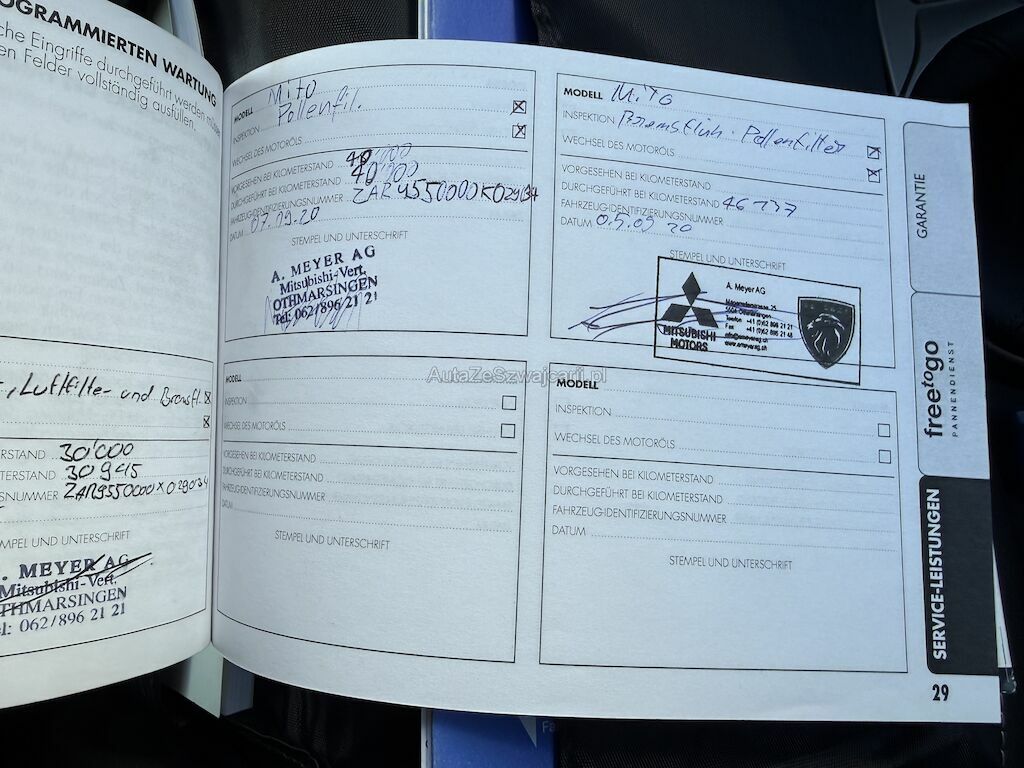 OGRAMMIERTEN WARTUNG
che Eingriffe durchgeführt werden
en Felder vollständig ausfüllen.
, Luftfilter und Bremsfl.
ERSTAND 30'000
TERSTAND 30 945
SNUMMER
MPEL UND UNTERSCHRIFT
. MEYER AG
Mitsubishi-Vert.
OTHMARSINGEN
el: 062/896 21 21
MODELL Mito
INSPEKTION Pollenfil.
WECHSEL DES MOTORÖLS
VORGESEHEN BEI KILOMETERSTAND
DURCHGEFÜHRT BEI KILOMETERSTAND
FAHRZEUG-IDENTIFIZIERUNGSNUMMER
DATUM
STEMPEL UND UNTERSCHRIFT
A. MEYER AG
Mitsubishi-Vert.
OTHMARSINGEN
Tel: 062/896 21 21
MODELL Mito
INSPEKTION Pollenfilter
WECHSEL DES MOTORÖLS
VORGESEHEN BEI KILOMETERSTAND
DURCHGEFÜHRT BEI KILOMETERSTAND
FAHRZEUG-IDENTIFIZIERUNGSNUMMER
DATUM 05.09 20
STEMPEL UND UNTERSCHRIFT
MITSUBISHI
MOTORS
A. Meyer AG
Telefon +41 (0)62 896 21 21
Fax +41 (0)62 896 21 48
MODELL
INSPEKTION
WECHSEL DES MOTORÖLS
VORGESEHEN BEI KILOMETERSTAND
DURCHGEFÜHRT BEI KILOMETERSTAND
FAHRZEUG-IDENTIFIZIERUNGSNUMMER
DATUM
STEMPEL UND UNTERSCHRIFT
MODELL
INSPEKTION
WECHSEL DES MOTORÖLS
VORGESEHEN BEI KILOMETERSTAND
DURCHGEFÜHRT BEI KILOMETERSTAND
FAHRZEUG-IDENTIFIZIERUNGSNUMMER
DATUM
STEMPEL UND UNTERSCHRIFT
AutaZeSzwajcarii.pl
GARANTIE
freetogo
PANNENDIENST
SERVICE-LEISTUNGEN
29